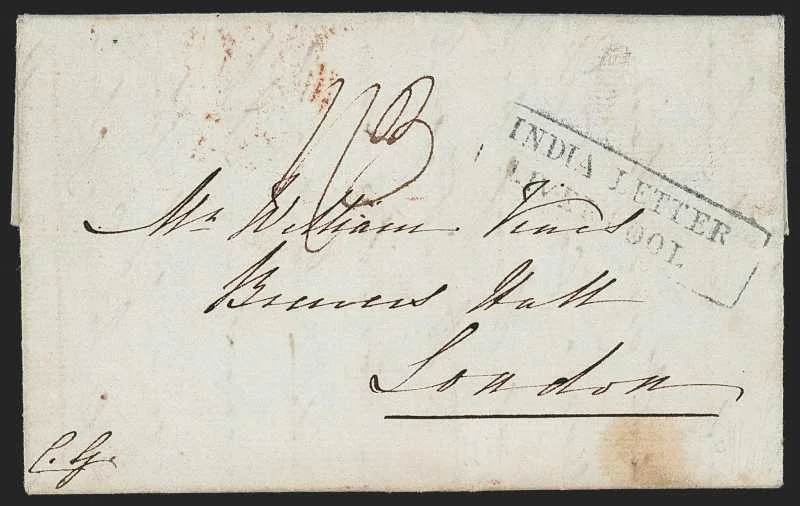 1/3
INDIA LETTER
LIVERPOOL
Mr William Vines
Brewers Hall
London
C. G.